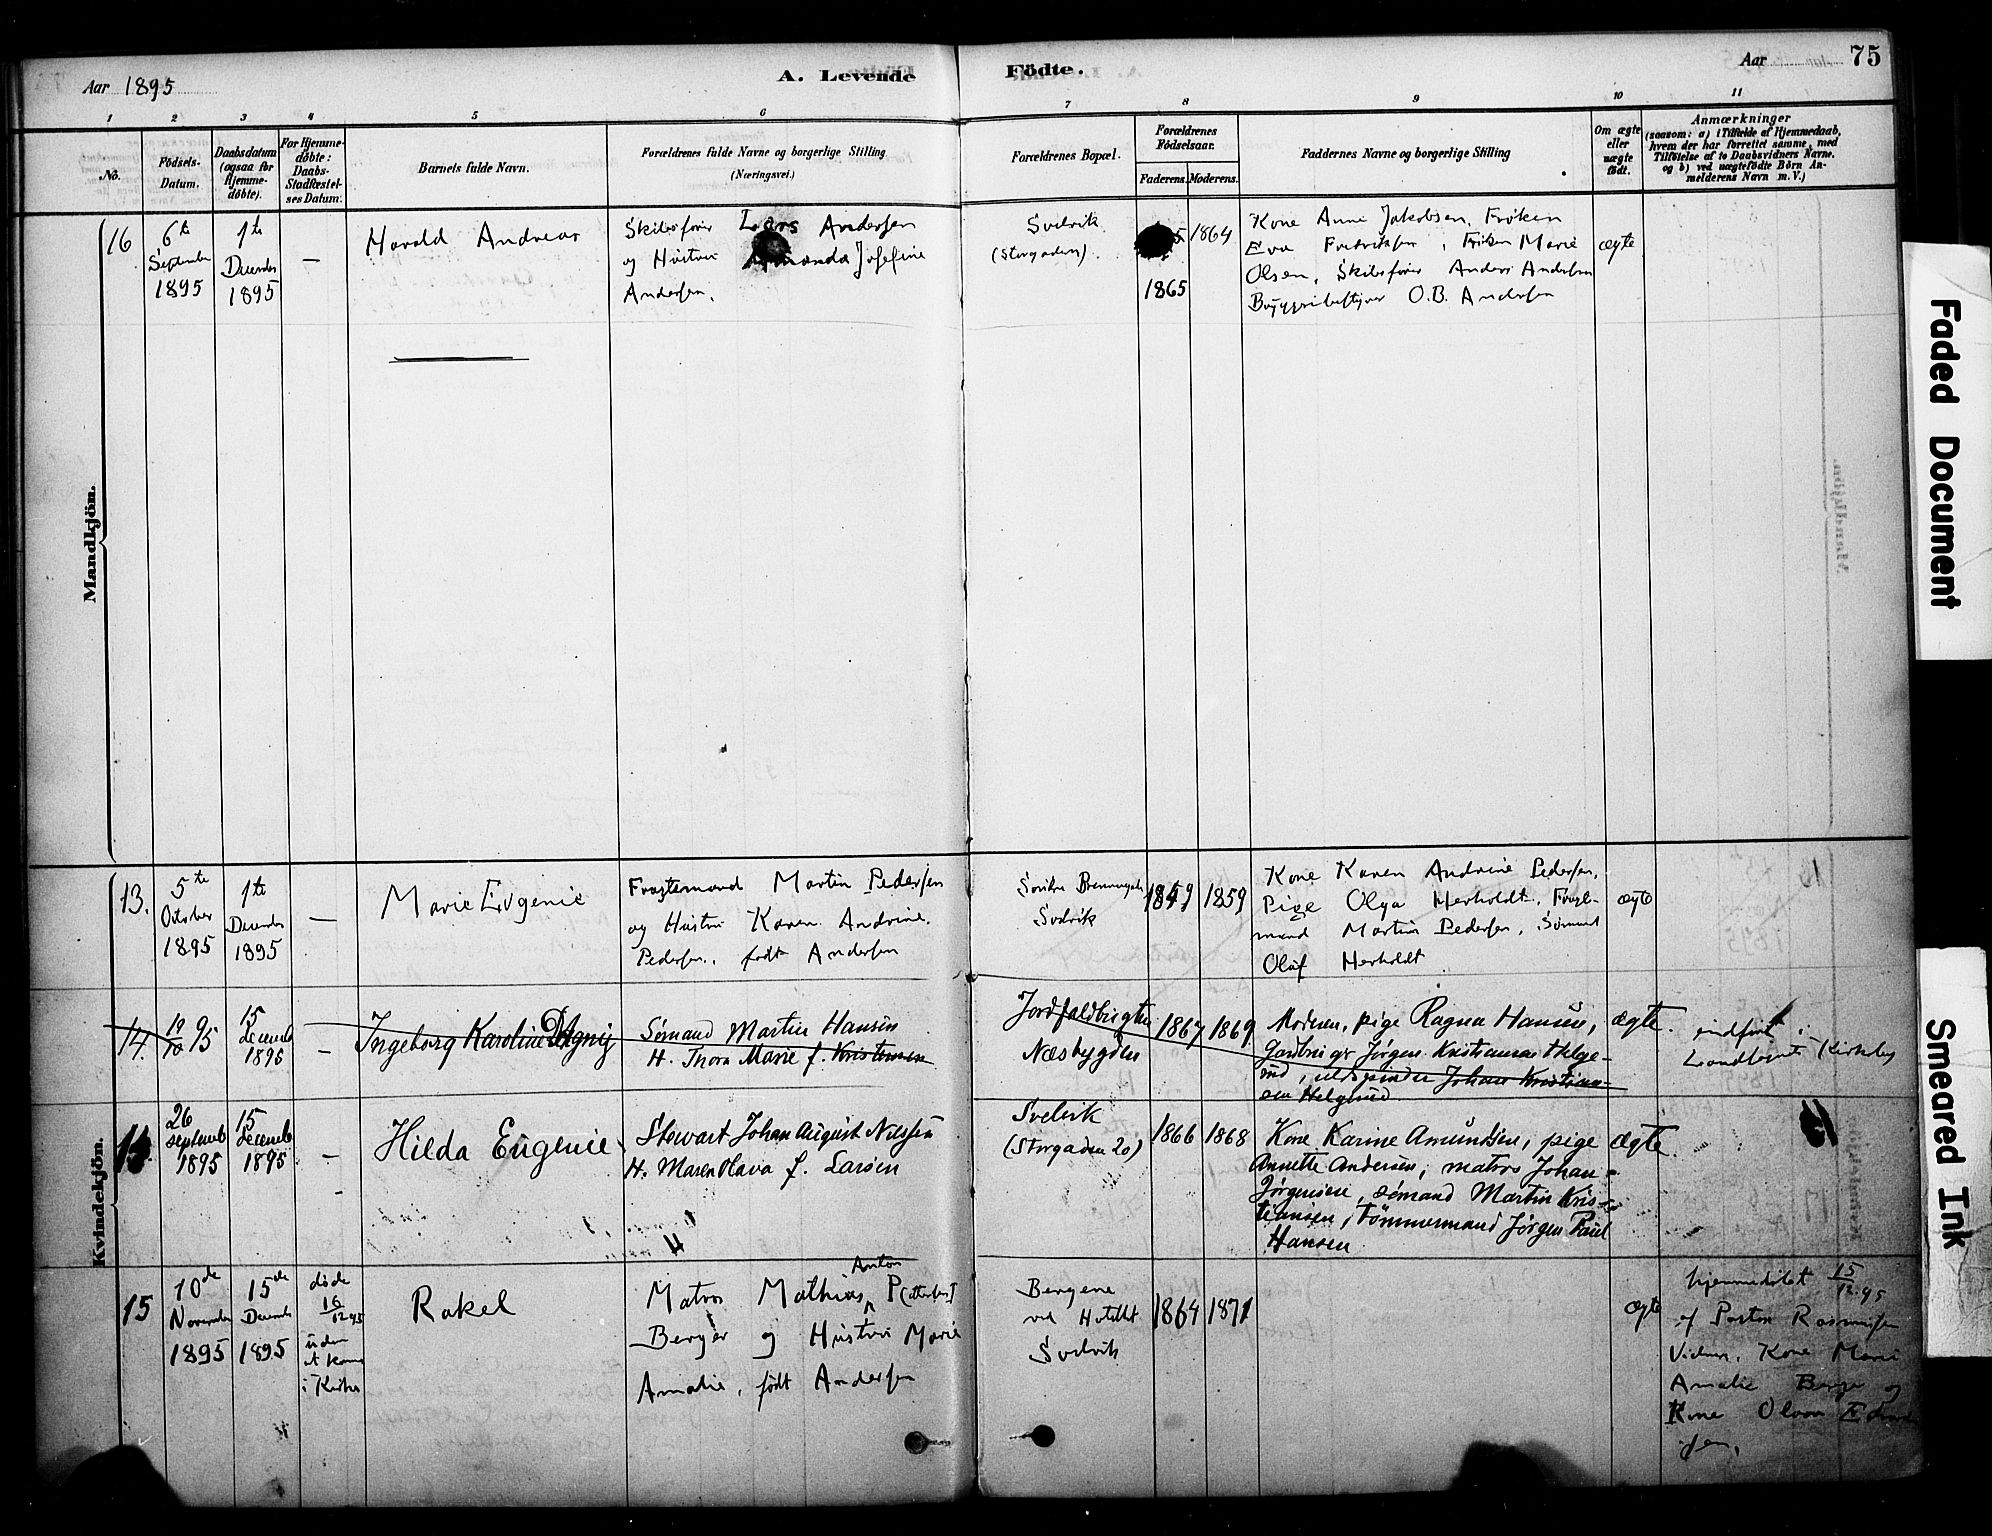 Aar 1895
A. Levende
Födte.
Aar
75
1 2 3 4 5 6 7 8 9 10 11
No.
Födsels-
Datum.
Daabsdatum
(ogsaa for
Hjemme-
døbte).
For Hjemme-
døbte:
Daabs-
Stadfæstel-
ses Datum.
Barnets fulde Navn.
Forældrenes fulde Navne og borgerlige Stilling
(Næringsvei.)
Forældrenes Bopæl.
Forældrenes
Födselsaar.
Faderens. Moderens.
Faddernes Navne og borgerlige Stilling
Om ægte
eller
uægte
født.
Anmærkninger
(saasom: a) i Tilfælde af Hjemmedaab,
hvem der har forrettet samme, med
Tilföielse af to Daabsvidners Navne,
og b) ved uægtefödte Börn An-
melderens Navn m. V.)
Mandkjön.
16
6te
September
1895
1te
December
1895
—
Harald Andreas
Skibsfører Lars Andersen
og Hustru Amanda Josefine
Andersen.
Svelvik
(Storgaden).
1865
1864
Kone Anne Jakobsen, Frøken
Eva Fredriksen, Frøken Marie
Olsen, Skibsfører Anders Andersen
O.B. Andersen
ægte
Kvindekjön.
13.
5te
October
1895
1te
December
1895
—
Marie Eugenie
Fragtemand Martin Pedersen
og Hustru Karen Andrine
Pedersen, født Andersen
Svelvik
1859
1859
Kone Karen Andrine Pedersen,
Pige Olga Herholdt, Fragt-
mand Martin Pedersen, Sømand
Olaf Herholdt
ægte
14.
19/10 95
15
december
1895
—
Ingeborg Karoline Dagny
Sømand Martin Hansen
H. Thora Marie f. Kristensen
Næsbygden
1867
1869
Moderen, pige Ragna Hansen,
Jørgen Kristiansen Helge-
rud, Johan Kristian-
sen Helgerud
ægte.
indført i
Landsognets Kirkebog
14.
26
septemb
1895
15
decemb
1895
—
Hilda Eugenie
Stewart Johan August Nilssen
H. Maren Olava f. Larsen
Svelvik
(Storgaden 20)
1866
1868
Kone Karine Amundsen, pige
Annette Andersen, matros Johan
Jørgensen, sømand Martin Kris-
tiansen, Tømmermand Jørgen Paul
Hansen
ægte.
15
10de
November
1895
15de
December
1895
døde
16/12 95
uden
at komme
i Kirke
Rakel
Anton
Matros Mathias P(ettersen)
Berger og Hustru Marie
Amalie, født Andersen
Bergene
ved Hotellet
Svelvik
1864
1871
ægte
hjemmedøbt 15/12 95
af Pastor Rasmussen
Vidner, Kone Marie
Amalie Berger og
Kone
sen.
Faded Document
Smeared Ink